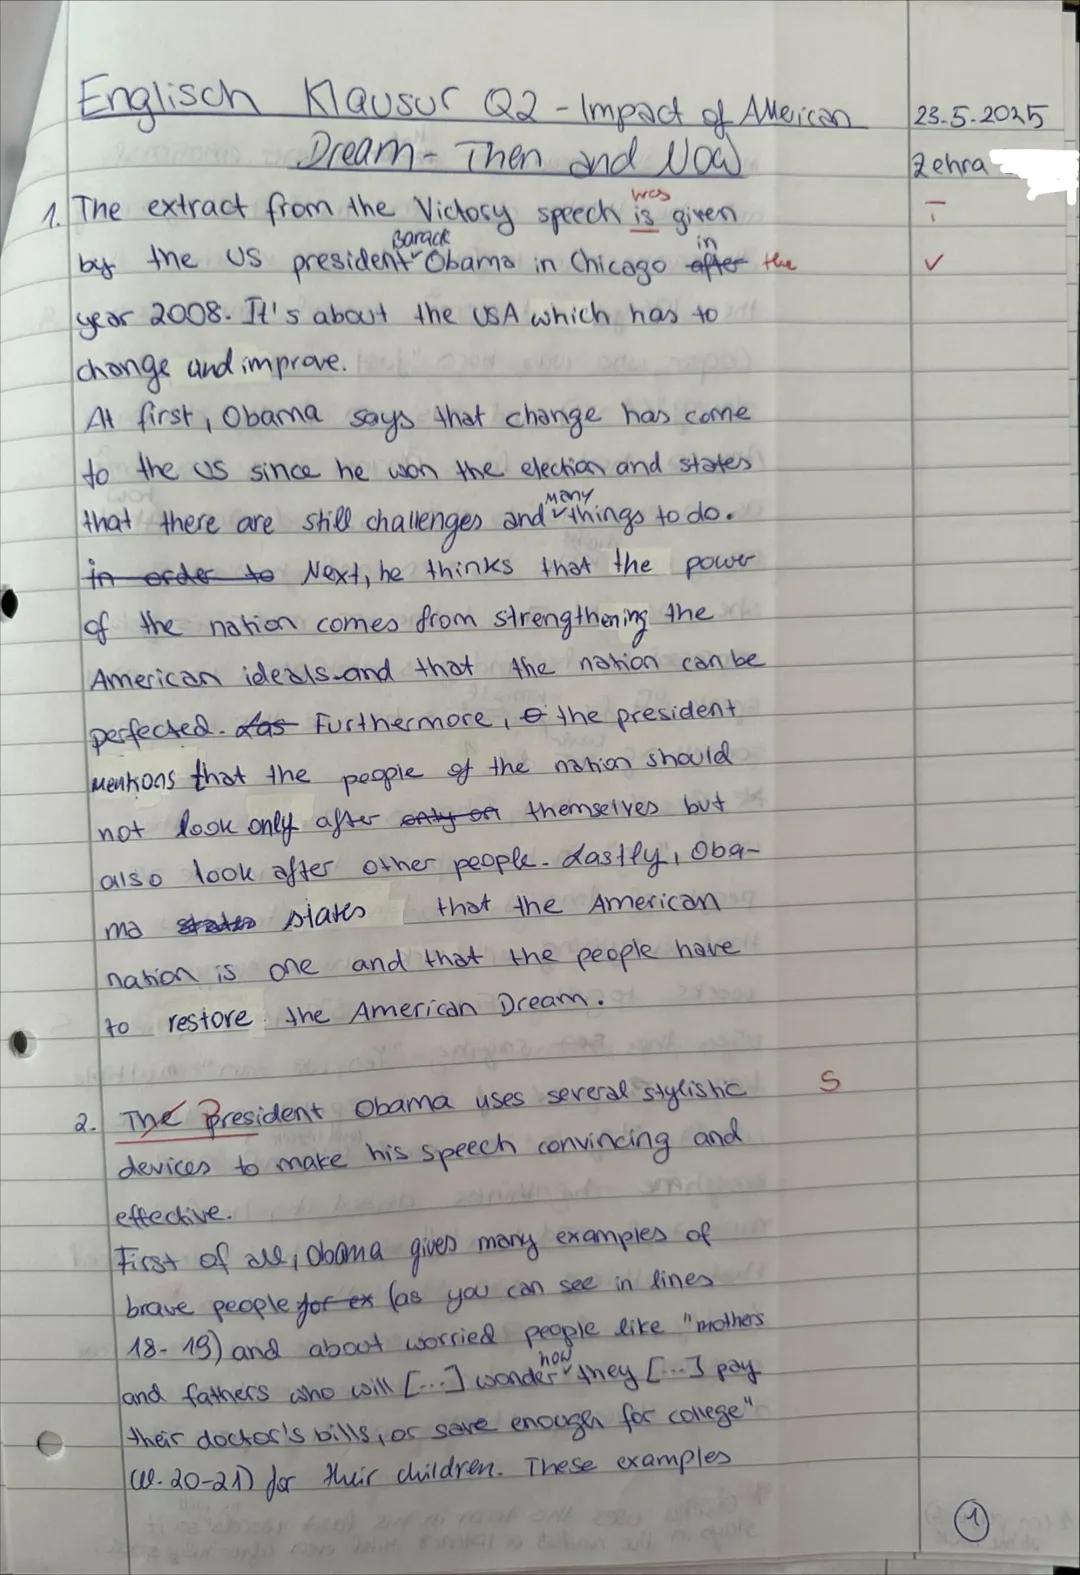 Englisch Klausur Q2 - Impact of American
Dream - Then and Now
23.5.2025
Zehra
1. The extract from the Victory speech is given
was
T
by the US president Obama in Chicago after the
Barack
in
✓
year 2008. It's about the USA which has to
change and improve.
At first, Obama says that change has come
to the US since he won the election and states
that there are still challenges and things to do.
many
in order to Next, he thinks that the power
of the nation comes from strengthening the
American ideals and that the nation can be
perfected. Las Furthermore, the president
mentions that the people of the nation should
not look only after only on themselves but
also look after other people. Lastly, Oba-
ma states states that the American
nation is one and that the people have
to restore the American Dream.
2. The President Obama uses several stylistic
S
devices to make his speech convincing and
effective.
First of all, Obama gives many examples of
brave people for ex (as you can see in lines
18-19) and about worried people like "mothers
and fathers who will [...] wonder they [...] pay
how
their doctor's bills, or save enough for college"
(ll. 20-21) for their children. These examples
1